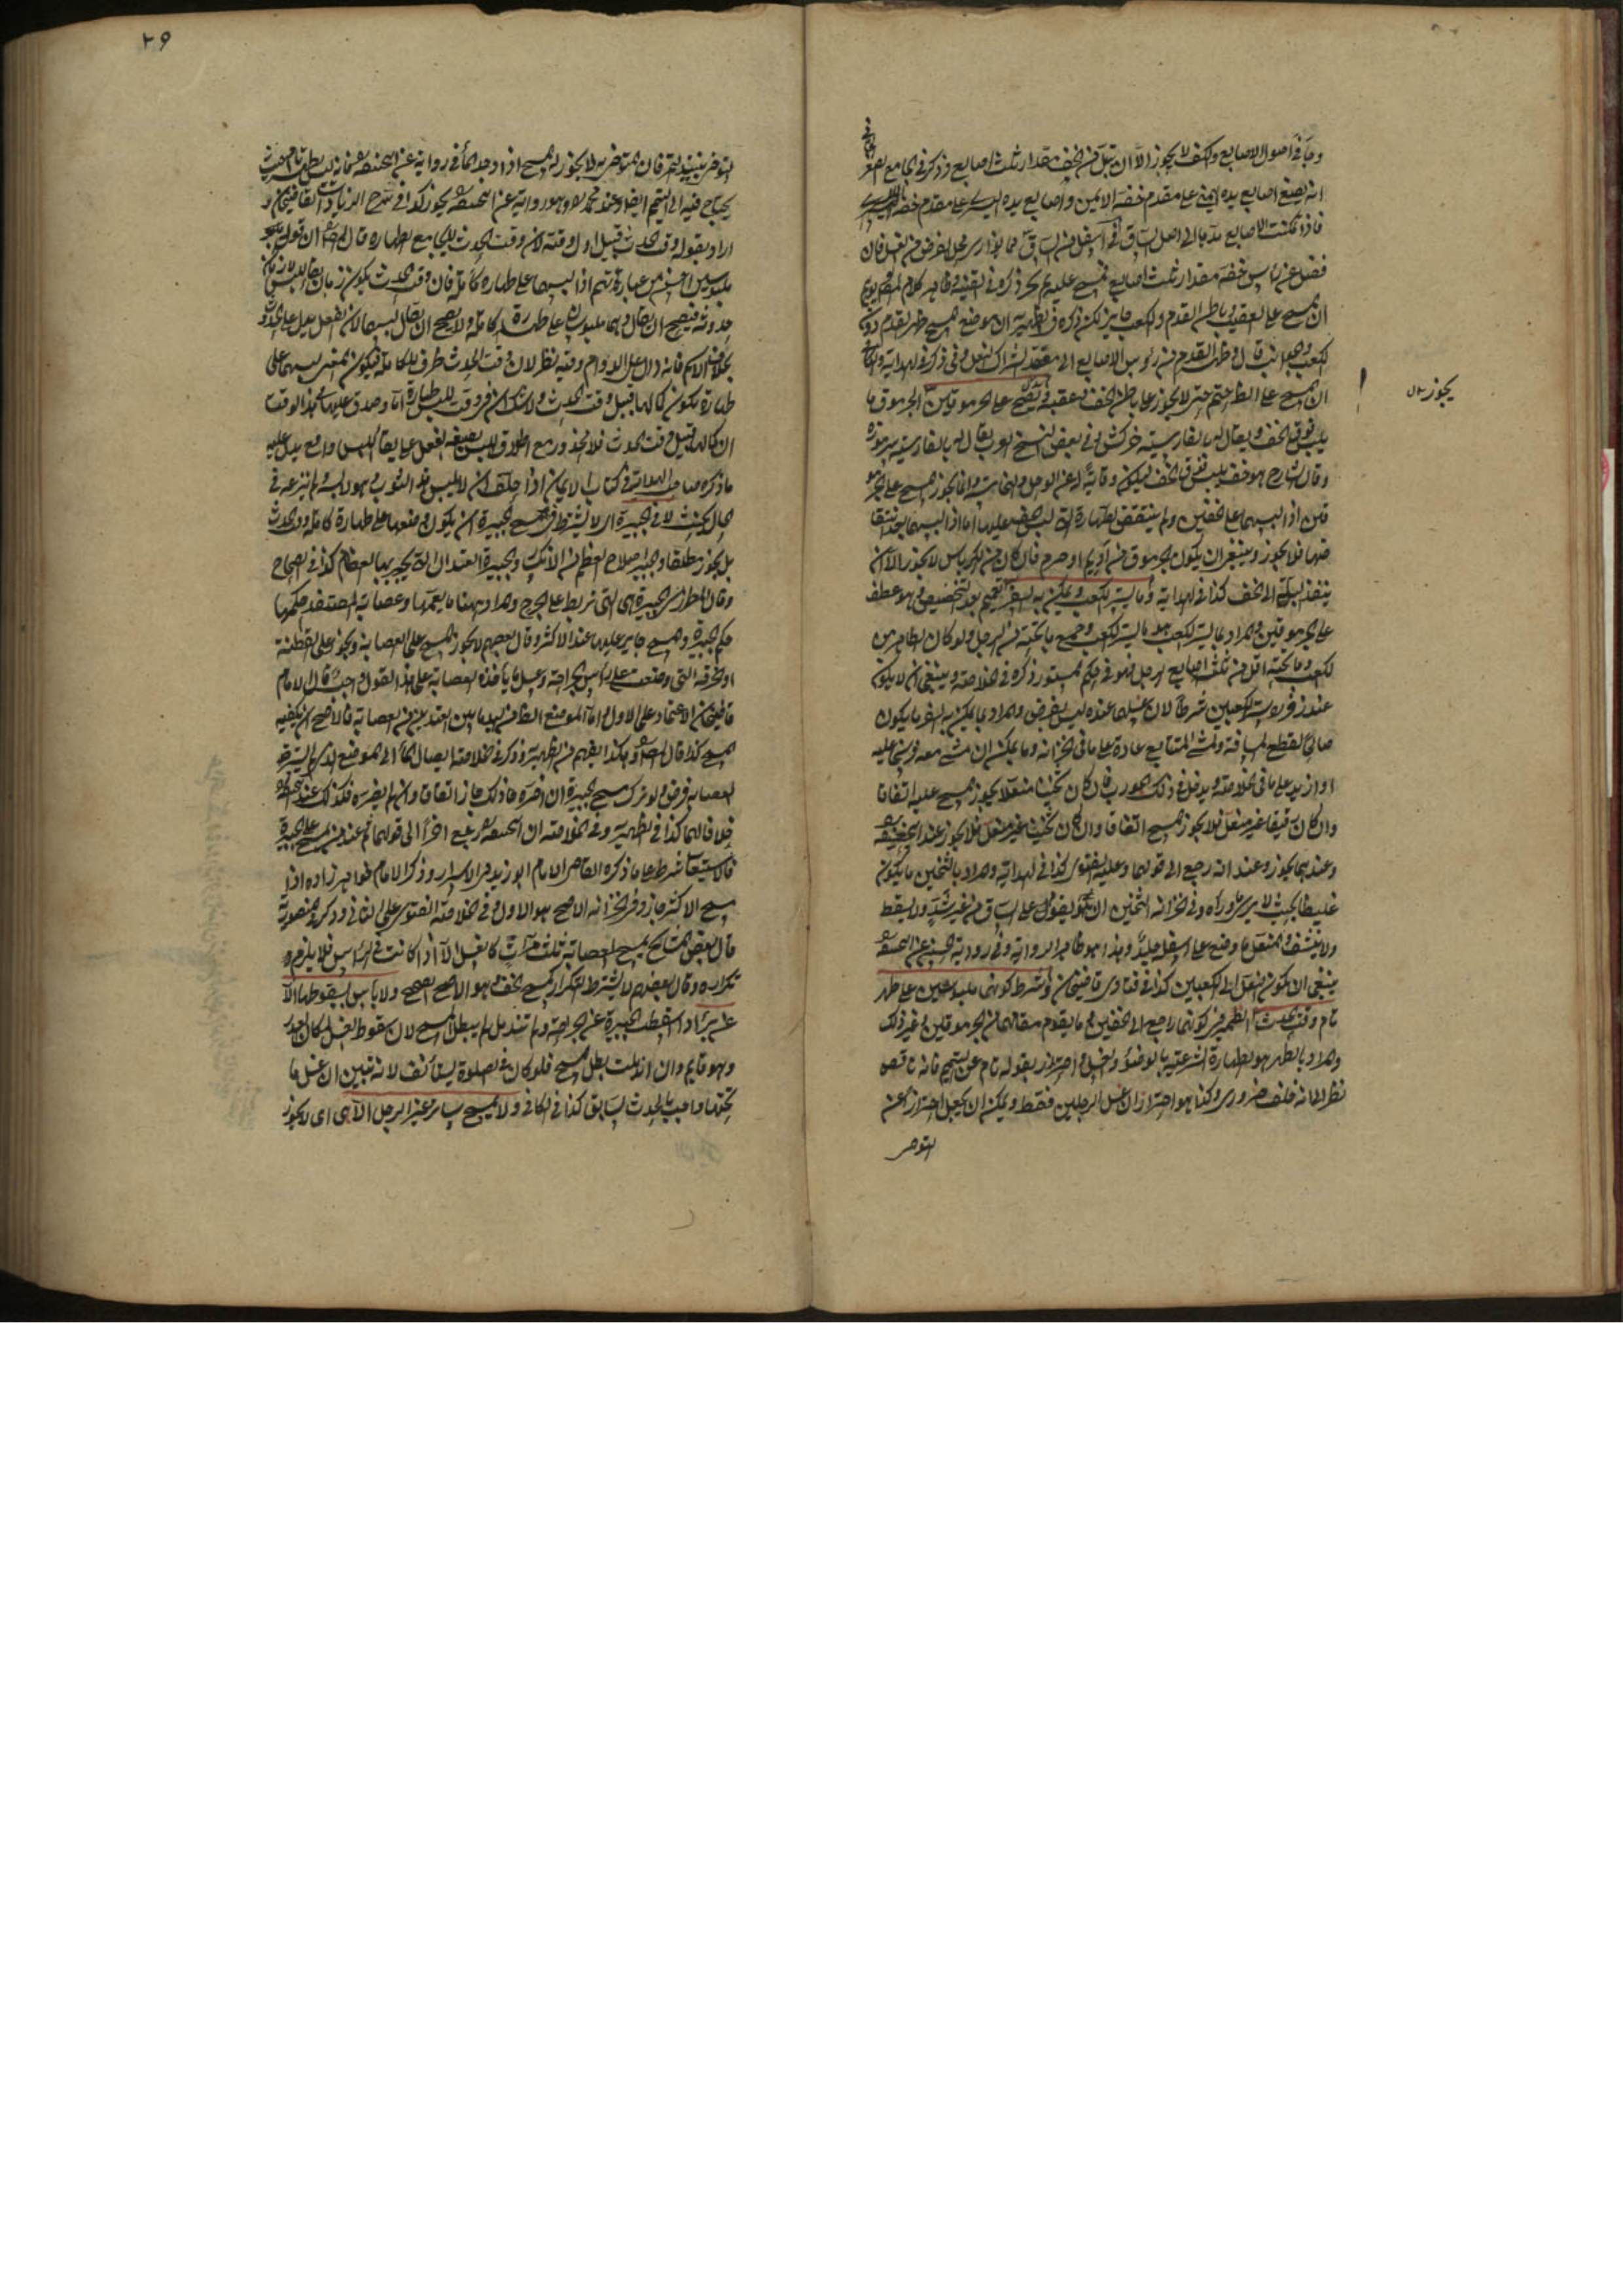 وجافى اصول الاصابع والكف لا يجوز الا ان تبل من الخف مقدار ثلث اصابع وذكر فى الجامع الصغير
انه يضع اصابع يده اليمنى على مقدم خفه الايمن واصابع يده اليسرى على مقدم خفه الايسر
فاذا تمكنت الاصابع مدها الى اصل الساق اى اسفل من الساق مما يوازى محل الفرض من الغسل فان
فضل عن راس خفه مقدار ثلث اصابع فمسح عليه لم يجز ذكره فى القنية وظاهر كلام المص يوهم
ان المسح على العقب وباطن القدم والكعب جايز لكن ذكر فى الظهيرية ان موضع المسح ظهر القدم دون
الكعب والجوانب قال فى ظهر القدم من رؤس الاصابع الى معقد الشراك
ان المسح على الظاهر حتم حتى لا يجوز على باطن الخف وعقبه وساقه على الجرموقين الجرموق ما
يلبس فوق الخف ويقال له بالفارسية خركش وفى بعض النسخ المعرب يقال له بالفارسية سرموزه
وقال الشارح هو خف يلبس فوق الخف ليكون وقاية له عن الوحل والنجاسة وانما يجوز المسح على الجرمو
قين اذا لبسهما على الخفين ولم ينتقض الطهارة التى لبس الخف عليها اما اذا لبسهما بعد انتقا
ضها فلا يجوز وينبغى ان يكون الجرموق من اديم او صرم فان كان من الكرباس لا يجوز الا ان
ينفذ البلة الى الخف كذا فى الهداية وما يستر الكعب ويمكن به السفر تعميم بعد التخصيص فهو عطف
على الجرموقين والمراد بما يستر الكعب وجميع ما تحته من الرجل ولو كان الظاهر من
الكعب وما تحته اقل من ثلث اصابع الرجل فهو فى حكم المستور ذكره فى الخلاصة وينبغى ان لا يكون
عند زفر ستر الكعبين شرطا لان غسلهما عنده ليس بفرض والمراد بما يمكن به السفر ما يكون
صالحا لقطع المسافة والمشى المتتابع عادة على ما فى الخزانة وما يمكن ان مشى معه فرسخا عليه
او ازيد على ما فى الخلاصة ويدخل فى ذلك الجورب فان كان ثخينا منعلا يجوز المسح عليه اتفاقا
وان كان رقيقا غير منعل فلا يجوز المسح اتفاقا وان كان ثخينا غير منعل فلا يجوز عند ابى حنيفة
وعندهما يجوز وعنه انه رجع الى قولهما وعليه الفتوى كذا فى الهداية والمراد بالثخين ما يكون
غليظا بحيث لا يرى ما وراه وفى الخزانة الثخين ان يقوم على الساق من غير شد ولا يسقط
ولا ينشف والمنعل ما وضع على اسفله جلد وهذا هو ظاهر الرواية وفى رواية الحسن عن ابى حنيفة
ينبغى ان يكون النعل الى الكعبين كذا فى فتاوى قاضيخان وشرط كونهما ملبوسين على طهر
تام وقت الحدث الضمير فى كونهما راجع الى الخفين او ما يقوم مقامهما من الجرموقين او غير ذلك
والمراد بالطهر هو الطهارة الشرعية بالوضوء والغسل واحترز بقوله تام عن التيمم فانه ناقص
نظرا الى انه خلف ضرورى وكذا هو احتراز ان غسل الرجلين فقط ويمكن ان يجعل احترازا عن
التوضى
يجوز
٢٩
التوضى بنبيذ التمر فان المتوضى به لا يجوز له المسح اذا وجد الماء فى رواية عن ابى حنيفة فانه ليس بطهر تام حيث
يحتاج فيه الى التيمم ايضا وعند محمد وهو رواية عن ابى حنيفة يجوز كذا فى شرح الزيادات لقاضيخان و
اراد بقوله وقت الحدث قبيل اول وقته لان وقت الحدث لا يجامع الطهارة قال المص ان قولى
ملبوسين احسن من عبارتهم اذا لبسهما على طهارة كاملة فان وقت الحدث يكون زمان بقاء اللبس لا زمان
حدوثه فيصح ان يقال وهما ملبوسان على طهارة كاملة ولا يصح ان يقال لبسهما لان الفعل يدل على الحدوث
بخلاف الاسم فانه دال على الدوام وفيه نظر لان وقت الحدث ظرف للكاملة فيكون المعنى لبسهما على
طهارة يكون كمالها قبيل وقت الحدث ولا شك
ان كمالها قبيل وقت الحدث فلا محذور مع اطلاق اللبس بصيغة الفعل على بقاء اللبس واقع يدل عليه
ما ذكره صاحب الهداية فى كتاب الايمان اذا حلف ان لا يلبس هذا الثوب وهو لابسه ولم ينزعه فى
الحال يحنث لا فى الجبيرة اى لا يشترط فى مسح الجبيرة ان يكون وضعها على طهارة كاملة وقت الحدث
بل يجوز مطلقا والجبر اصلاح العظم من الانكسار والجبيرة العيدان التى يجبر بها العظام كذا فى الصحاح
وقال المطرزى الجبيرة هى التى تربط على الجرح والمراد ههنا ما يعمها وعصابة المفتصد حكمها
حكم الجبيرة والمسح جايز عليها عند الاكثر وقال بعضهم لا يجوز المسح على العصابة ويجوز على القطنة
او الخرقة التى وضعت على راس الجراحة وغسل ما ياخذه العصابة على هذا القول واجب قال الامام
قاضيخان الاعتماد على الاول واما الموضع الظاهر من اليد ما بين العقدتين من العصابة فالاصح ان يكفيه
المسح كذا قال المص وهكذا يفهم من الظهيرية وذكر فى الخلاصة ايصال الماء الى الموضع الذى لم يستره
العصابة فرض ولو ترك مسح الجبيرة ان اضره فذلك جاز اتفاقا وان لم يضره فكذلك عند ابى حنيفة
خلافا لهما كذا فى الظهيرية وفى الخلاصة ان ابا حنيفة رجع اخرا الى قولهما ثم عند من مسح على الجبيرة
فالاستيعاب شرط على ما ذكره القاضى الامام ابو زيد فى الاسرار وذكر الامام خواهر زاده اذا
مسح الاكثر جاز وفى الخزانة الاصح هو الاول وفى الخلاصة الفتوى على الثانى وذكر فى المنصورية
قال بعض المشايخ يمسح العصابة ثلث مرات كالغسل الا اذا كانت فى الراس فلا يلزمه
تكراره وقال بعضهم لا يشترط التكرار كمسح الخف وهو الاصح الصحيح ولا باس بسقوطها الا
عن برء اذا سقطت الجبيرة عن الجراحة ولم تندمل لم يبطل المسح لان سقوط الغسل كان لعذر
وهو قايم وان اندملت بطل المسح فلو كان فى الصلوة يستأنف لانه تبين ان غسل ما
تحتها واجب بالحدث السابق كذا فى الكافى ولا يمسح ساتر غير الرجل الا هى اى لا يجوز